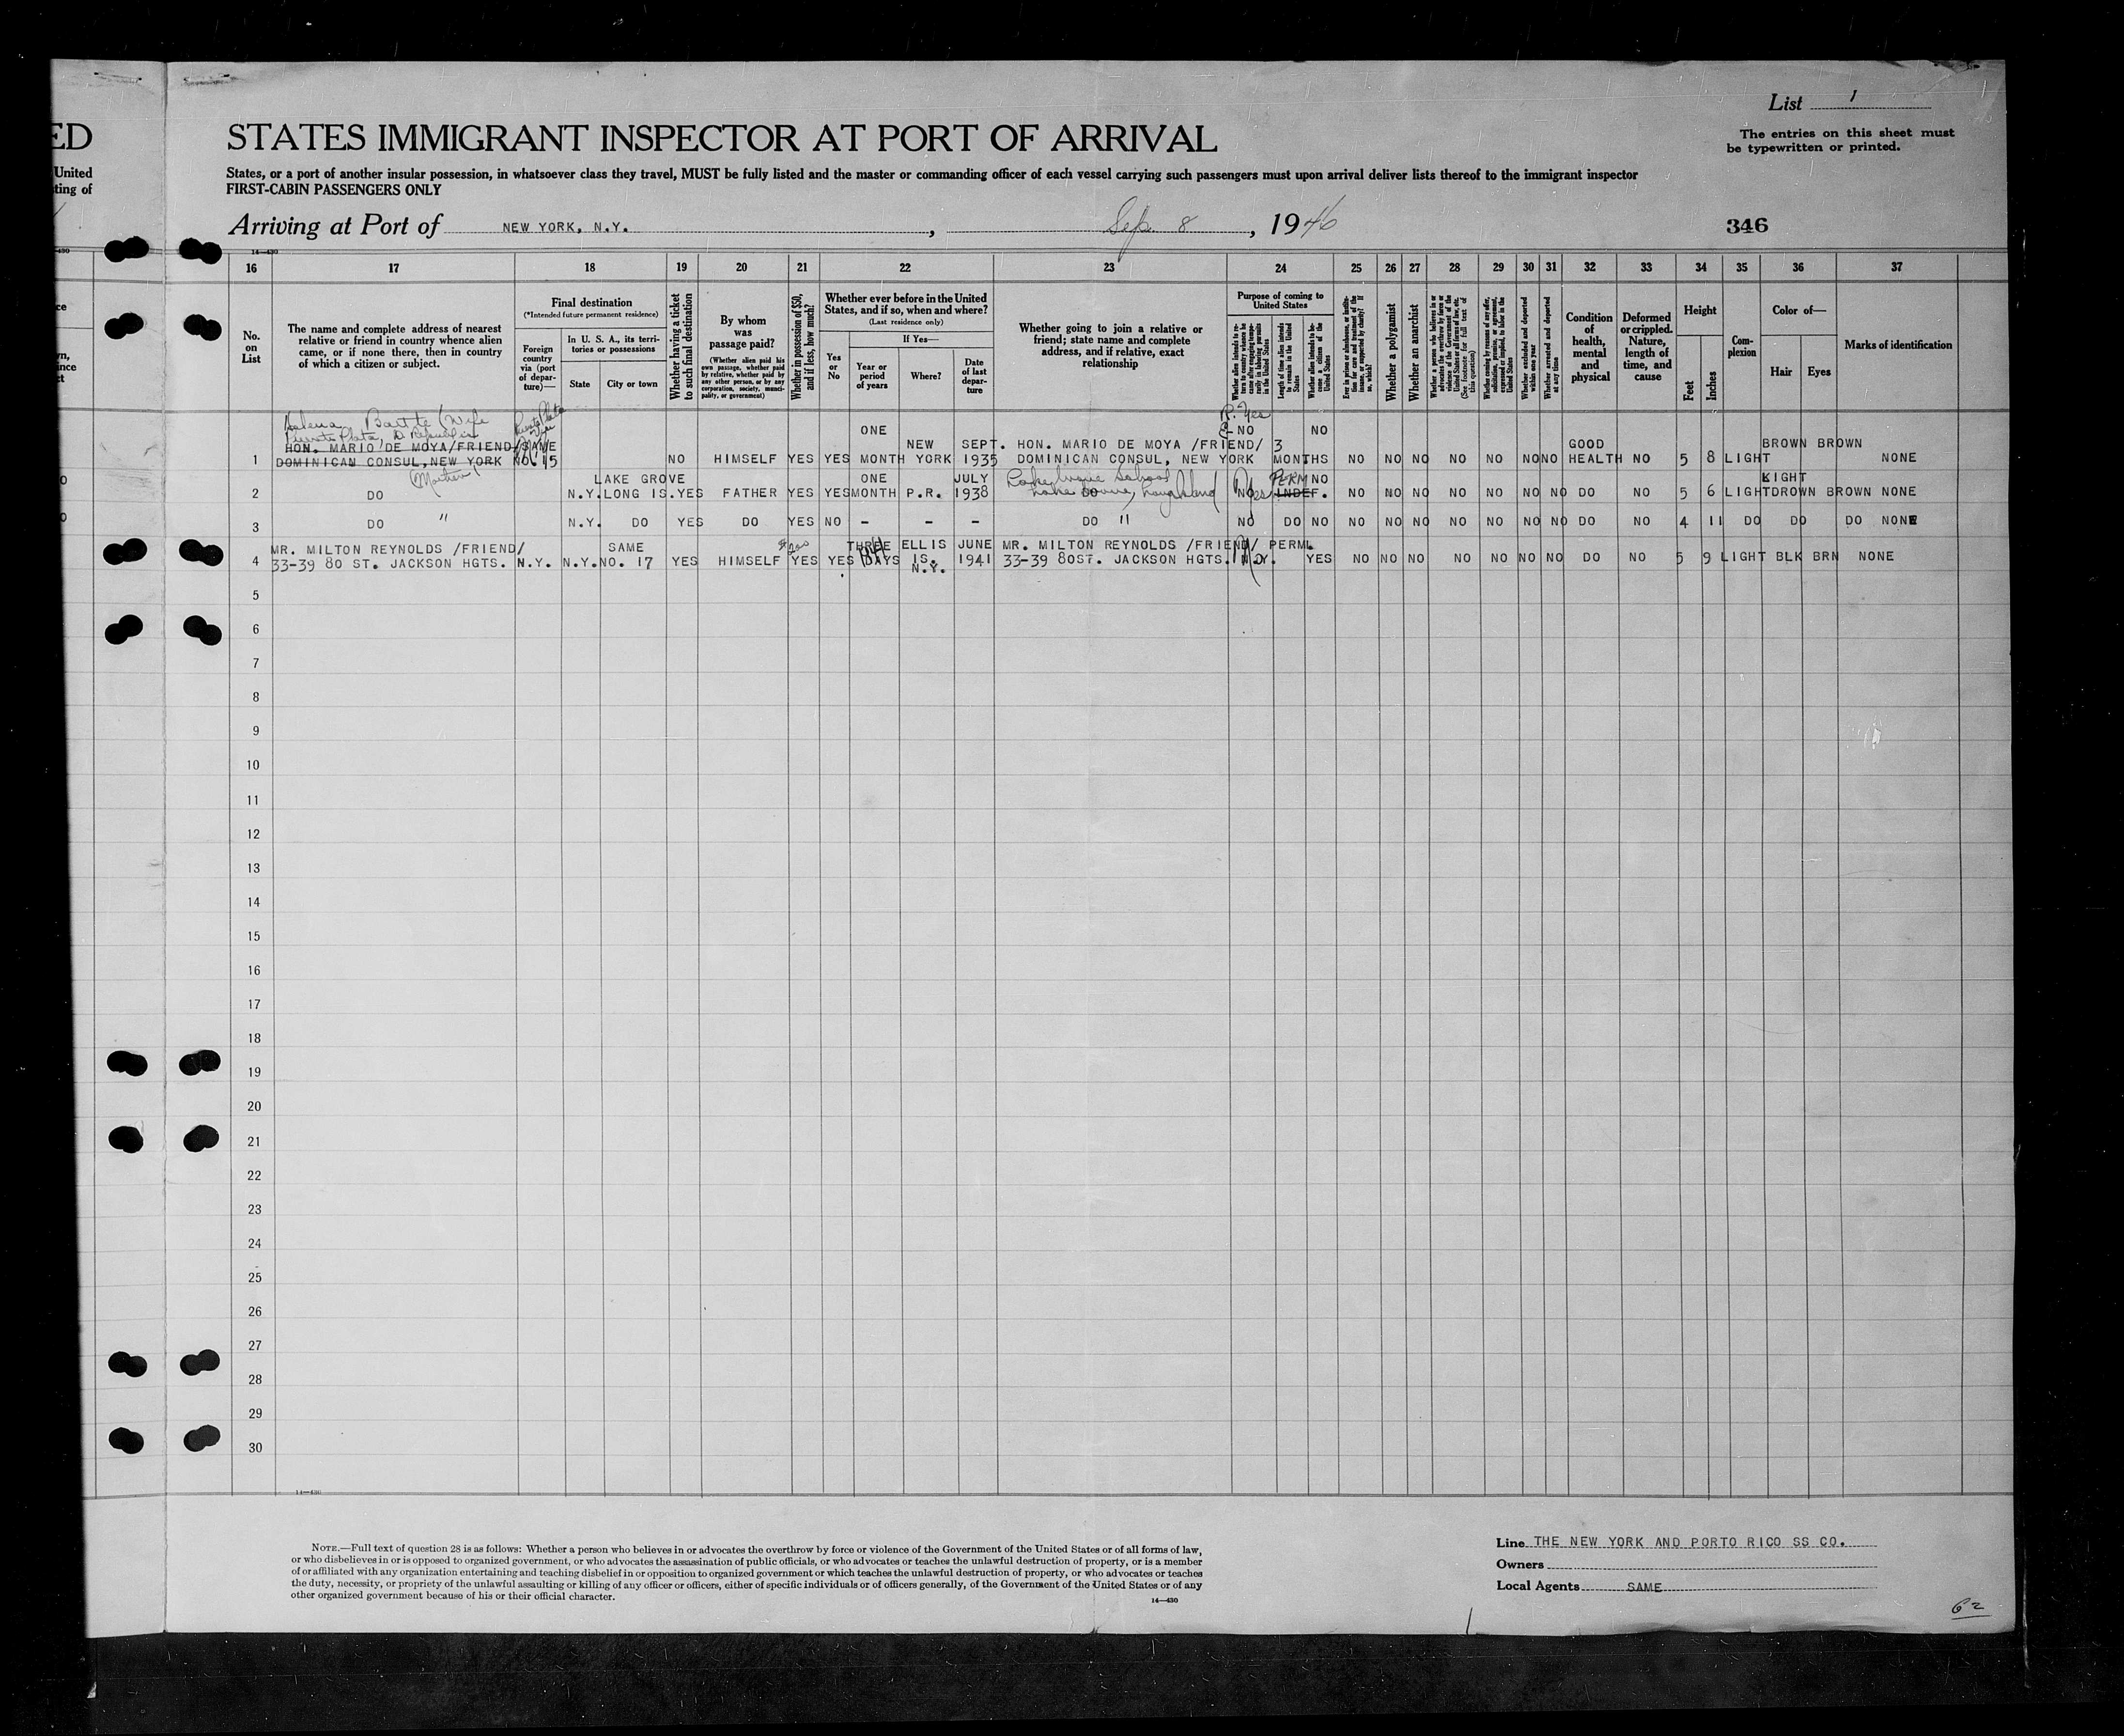 List 1
ED
STATES IMMIGRANT INSPECTOR AT PORT OF ARRIVAL
The entries on this sheet must
be typewritten or printed.
United
ting of
States, or a port of another insular possession, in whatsoever class they travel, MUST be fully listed and the master or commanding officer of each vessel carrying such passengers must upon arrival deliver lists thereof to the immigrant inspector
FIRST-CABIN PASSENGERS ONLY
Arriving at Port of NEW YORK, N.Y., Sep. 8, 1946
346
14—430
16 17 18 19 20 21 22 23 24 25 26 27 28 29 30 31 32 33 34 35 36 37
No.
on
List
The name and complete address of nearest
relative or friend in country whence alien
came, or if none there, then in country
of which a citizen or subject.
Final destination
(*Intended future permanent residence)
Foreign
country
via (port
of depar-
ture)—
In U. S. A., its terri-
tories or possessions
State
City or town
Whether having a ticket
to such final destination
By whom
was
passage paid?
(Whether alien paid his
own passage, whether paid
by relative, whether paid by
any other person, or by any
corporation, society, munici-
pality, or government)
Whether in possession of $50,
and if less, how much?
Whether ever before in the United
States, and if so, when and where?
(Last residence only)
Yes
or
No
If Yes—
Year or
period
of years
Where?
Date
of last
depar-
ture
Whether going to join a relative or
friend; state name and complete
address, and if relative, exact
relationship
Purpose of coming to
United States
Length of time alien intends
to remain in the United
States
Whether alien intends to be-
come a citizen of the
United States
Whether a polygamist
Whether an anarchist
(See footnote for full text of
this question)
Whether excluded and deported
within one year
Whether arrested and deported
at any time
Condition
of
health,
mental
and
physical
Deformed
or crippled.
Nature,
length of
time, and
cause
Height
Feet
Inches
Com-
plexion
Color of—
Hair
Eyes
Marks of identification
Helena Bartte (Wife
Puerto Plata, D Republic
Puerto Plata
R. Yes
ONE NO NO
HON. MARIO DE MOYA/FRIEND/ SAME NEW SEPT. HON. MARIO DE MOYA /FRIEND/ 3 GOOD BROWN BROWN
1 DOMINICAN CONSUL, NEW YORK NO. 15 NO HIMSELF YES YES MONTH YORK 1935 DOMINICAN CONSUL, NEW YORK MONTHS NO NO NO NO NO NO NO HEALTH NO 5 8 LIGHT NONE
(Mother) LAKE GROVE ONE JULY School PERM NO KIGHT
2 DO N.Y. LONG IS. YES FATHER YES YES MONTH P.R. 1938 NO Yes INDEF. NO NO NO NO NO NO NO DO NO 5 6 LIGHT DROWN BROWN NONE
3 DO " N.Y. DO YES DO YES NO - - - DO " NO DO NO NO NO NO NO NO NO NO DO NO 4 11 DO DO DO NONE
MR. MILTON REYNOLDS /FRIEND/ SAME THREE ELLIS JUNE MR. MILTON REYNOLDS /FRIEND/ PERM.
4 33-39 80 ST. JACKSON HGTS. N.Y. N.Y. NO. 17 YES HIMSELF YES YES DAYS IS. 1941 33-39 80ST. JACKSON HGTS. N.Y. YES NO NO NO NO NO NO NO DO NO 5 9 LIGHT BLK BRN NONE
N.Y.
5
6
7
8
9
10
11
12
13
14
15
16
17
18
19
20
21
22
23
24
25
26
27
28
29
30
14—430
NOTE.—Full text of question 28 is as follows: Whether a person who believes in or advocates the overthrow by force or violence of the Government of the United States or of all forms of law,
or who disbelieves in or is opposed to organized government, or who advocates the assassination of public officials, or who advocates or teaches the unlawful destruction of property, or is a member
of or affiliated with any organization entertaining and teaching disbelief in or opposition to organized government or which teaches the unlawful destruction of property, or who advocates or teaches
the duty, necessity, or propriety of the unlawful assaulting or killing of any officer or officers, either of specific individuals or of officers generally, of the Government of the United States or of any
other organized government because of his or their official character.
14—430
Line THE NEW YORK AND PORTO RICO SS CO.
Owners
Local Agents SAME
62